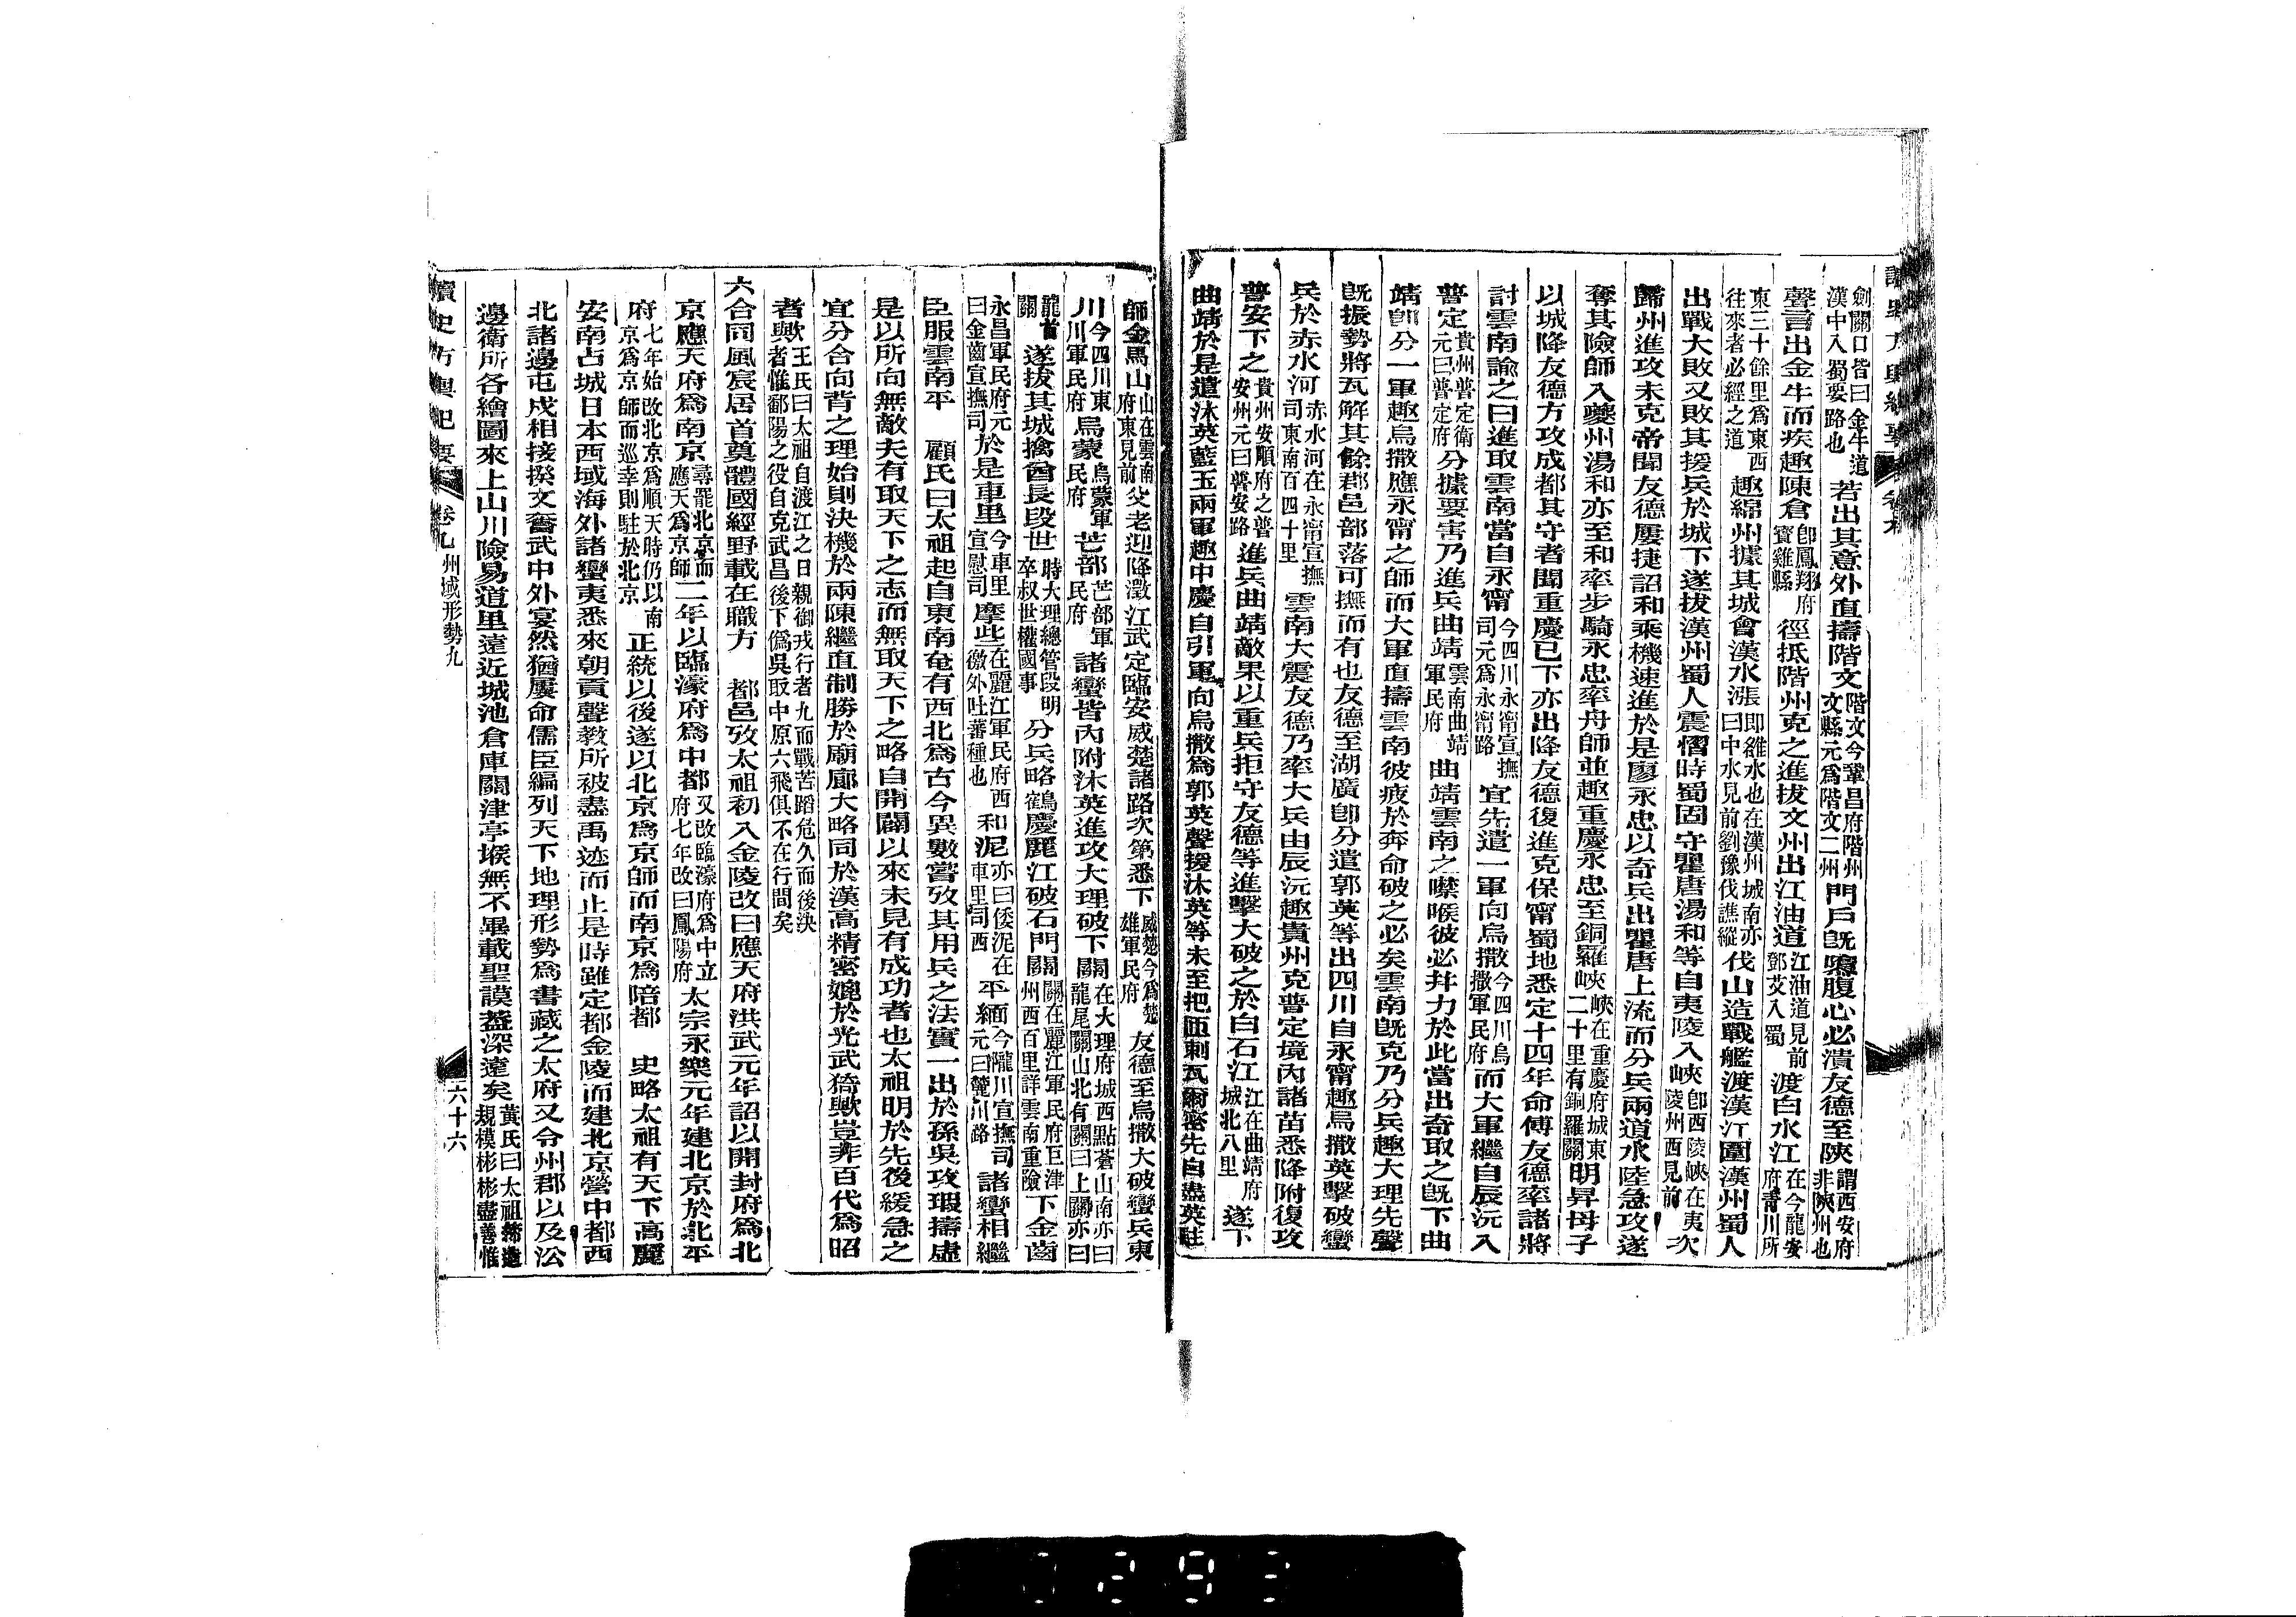 劍關口皆曰金牛道漢中入蜀要路也若出其意外直擣階文階文今鞏昌府階州文縣元爲階文二州門戶旣隳腹心必潰友德至陝謂西安府非陝州也
聲言出金牛而疾趣陳倉卽鳳翔府寶雞縣徑抵階州克之進拔文州出江油道江油道見前鄧艾入蜀渡白水江在今龍安府青川所
東三十餘里爲東西往來者必經之道趣綿州據其城會漢水漲卽雒水也在漢州城南亦曰中水見前劉豫伐譙縱伐山造戰艦渡漢江圍漢州蜀人
出戰大敗又敗其援兵於城下遂拔漢州蜀人震慴時蜀固守瞿唐湯和等自夷陵入峽卽西陵峽在夷陵州西見前次
歸州進攻未克帝聞友德屢捷詔和乘機速進於是廖永忠以奇兵出瞿唐上流而分兵兩道水陸急攻遂
奪其險師入夔州湯和亦至和率步騎永忠率舟師並趣重慶永忠至銅羅峽峽在重慶府城東二十里有銅羅關明昇母子
以城降友德方攻成都其守者聞重慶已下亦出降友德復進克保甯蜀地悉定十四年命傅友德率諸將
討雲南諭之曰進取雲南當自永甯今四川永甯宣撫司元爲永甯路宜先遣一軍向烏撒今四川烏撒軍民府而大軍繼自辰沅入
普定貴州普定衛元曰普定府分據要害乃進兵曲靖雲南曲靖軍民府曲靖雲南之噤喉彼必幷力於此當出奇取之旣下曲
靖卽分一軍趣烏撒應永甯之師而大軍直擣雲南彼疲於奔命破之必矣雲南旣克乃分兵趣大理先聲
旣振勢將瓦解其餘郡邑部落可撫而有也友德至湖廣卽分遣郭英等出四川自永甯趣烏撒英擊破蠻
兵於赤水河赤水河在永甯宣撫司東南百四十里雲南大震友德乃率大兵由辰沅趣貴州克普定境內諸苗悉降附復攻
普安下之貴州安順府之普安州元曰普安路進兵曲靖敵果以重兵拒守友德等進擊大破之於白石江江在曲靖府城北八里遂下
曲靖於是遣沐英藍玉兩軍趣中慶自引軍向烏撒爲郭英聲援沐英等未至把匝剌瓦爾密先自盡英駐
師金馬山山在雲南府東見前父老迎降澂江武定臨安威楚諸路次第悉下威楚今爲楚雄軍民府友德至烏撒大破蠻兵東
川今四川東川軍民府烏蒙烏蒙軍民府芒部芒部軍民府諸蠻皆內附沐英進攻大理破下關在大理府城西點蒼山南亦曰龍尾關山北有關曰上關亦曰
龍首關遂拔其城擒酋長段世時大理總管段明卒叔世權國事分兵略鶴慶麗江破石門關關在麗江軍民府巨津州西百里詳雲南重險下金齒
永昌軍民府元曰金齒宣撫司於是車里今車里宣慰司摩些在麗江軍民府西徼外吐蕃種也和泥亦曰倭泥在車里司西平緬今隴川宣撫司元曰麓川路諸蠻相繼
臣服雲南平　顧氏曰太祖起自東南奄有西北爲古今異數嘗攷其用兵之法實一出於孫吳攻瑕擣虛
是以所向無敵夫有取天下之志而無取天下之略自開闢以來未見有成功者也太祖明於先後緩急之
宜分合向背之理始則決機於兩陳繼直制勝於廟廊大略同於漢高精密媲於光武猗歟豈非百代爲昭
者歟王氏曰太祖自渡江之日親御戎行者九而戰苦蹈危久而後決者惟鄱陽之役自克武昌後下僞吳取中原六飛俱不在行間矣
六合同風宸居首奠體國經野載在職方　都邑攷太祖初入金陵改曰應天府洪武元年詔以開封府爲北
京應天府爲南京尋罷北京而應天爲京師二年以臨濠府爲中都又改臨濠府爲中立府七年改曰鳳陽府太宗永樂元年建北京於北平
府七年始改北京爲順天時仍以南京爲京師而巡幸則駐於北京正統以後遂以北京爲京師而南京爲陪都　史略太祖有天下高麗
安南占城日本西域海外諸蠻夷悉來朝貢聲敎所被盡禹迹而止是時雖定都金陵而建北京營中都西
北諸邊屯戍相接揆文奮武中外宴然猶屢命儒臣編列天下地理形勢爲書藏之太府又令州郡以及沿
邊衛所各繪圖來上山川險易道里遠近城池倉庫關津亭堠無不畢載聖謨蓋深遠矣黃氏曰太祖締造規模彬彬盡善惟
讀史方輿紀要　卷九　州域形勢九　六十六